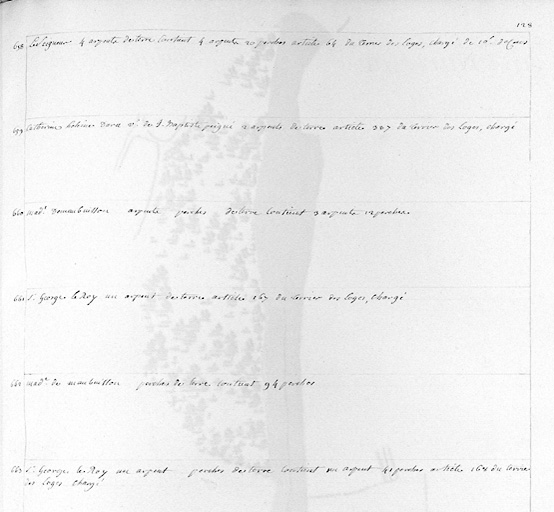 128
658 4 arpents de terre contient 4 arpents 20 perches article 64 du terrier des loges, chargé de 10#. de cens
659 Catherine v.e de J. Baptiste 2 arpents de terre article 327 du terrier des loges, chargé
660 mad.e de maubuisson arpents perches de terre contient 3 arpents 12 perches
661 S. George le Roy un arpent de terre article 167 du terrier des loges, chargé
662 mad.e de maubuisson perches de terre contient 94 perches
663 S. George le Roy un arpent perches de terre contient un arpent 41 perches article 168 du terrier
des loges chargé